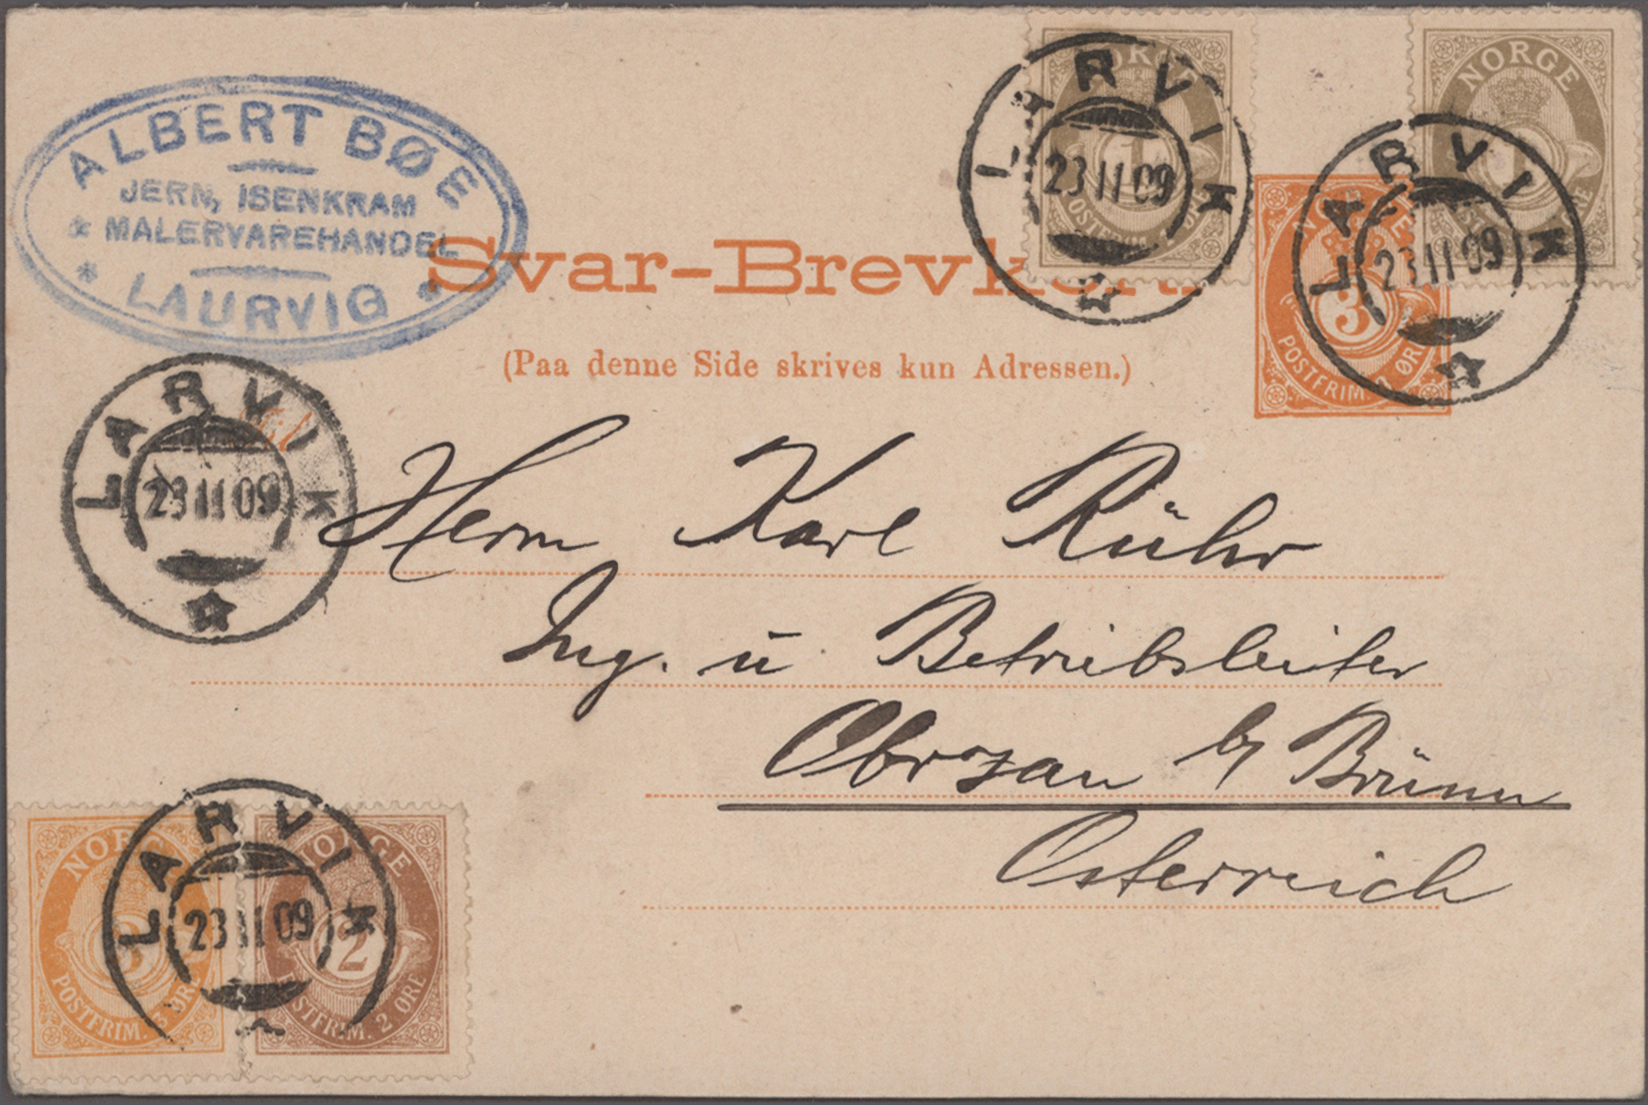 ALBERT BØE
JERN, ISENKRAM
& MALERVAREHANDEL
* LAURVIG *
NORGE
1
POSTFRIM. 1 ØRE
LARVIK
23 II 09
NORGE
1
ØRE
NORGE
3
POSTFRIM. 3 ØRE
LARVIK
23 II 09
Svar-Brevkort
(Paa denne Side skrives kun Adressen.)
LARVIK
23 II 09
Herrn Karl Rühr
Ing. u Betriebsleiter
Obrzan b/ Brünn
Österreich
NORGE
3
POSTFRIM. 3 ØRE
NORGE
2
POSTFRIM. 2 ØRE
LARVIK
23 II 09